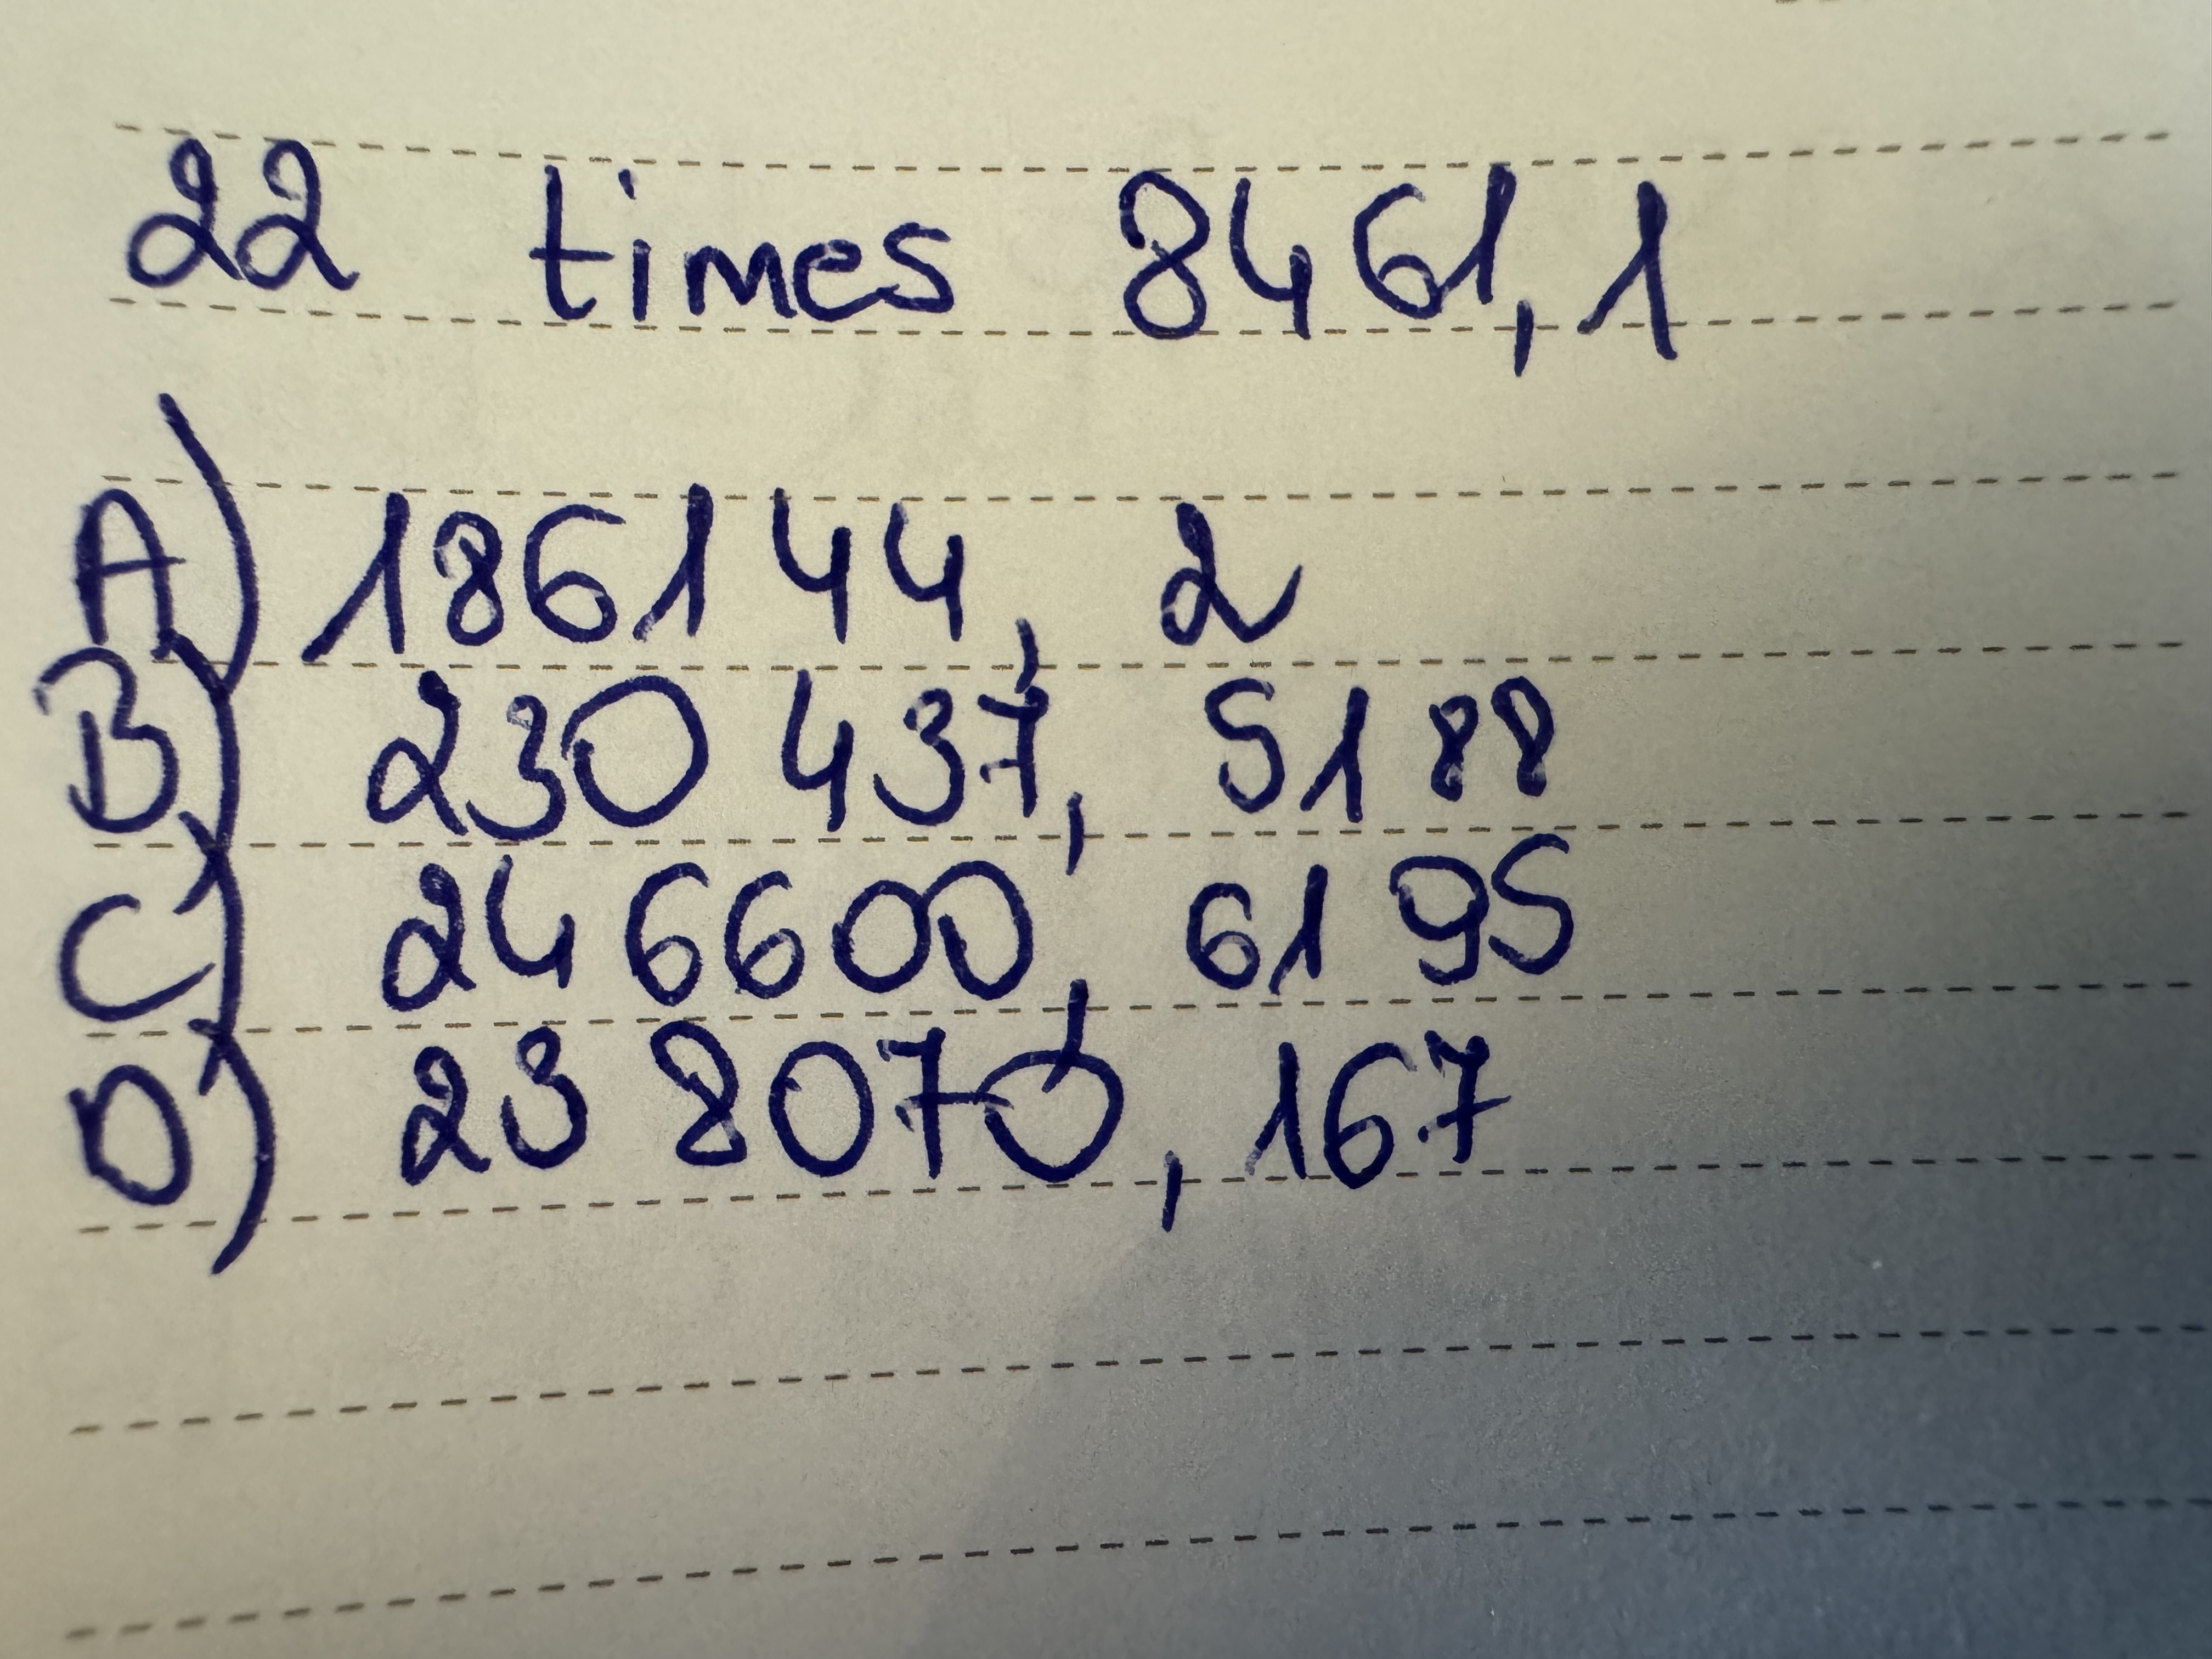 22 times 8461,1
A) 186144, 2
B) 230 437, 5188
C) 246600, 6195
D) 23 8070, 167